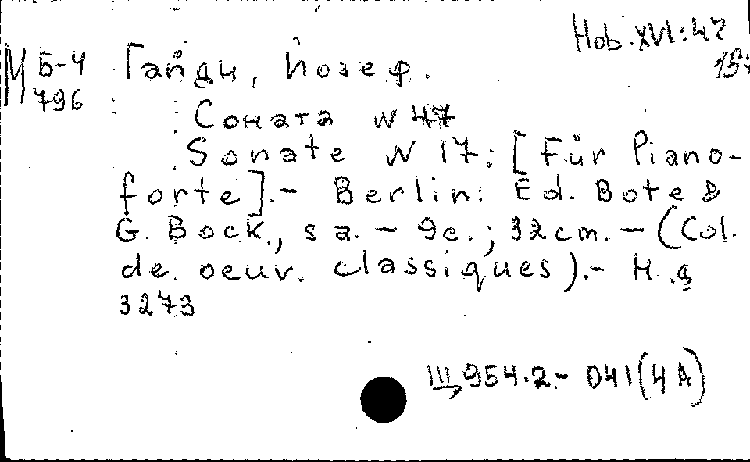 Hob.XVI:47
М Б-4
796
Гайдн, Йозеф.
Соната N 47
Sonate N 17: [Für Piano-
forte].- Berlin: Ed. Bote &
G. Bock, s a. - 9c.; 32cm. - (Col.
de. oeuv. classiques).- Н.д
3273
Щ954.2.- 041(4А)